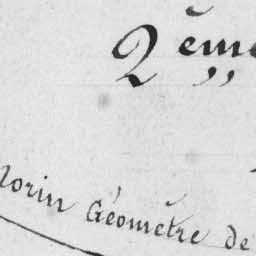 2ème
Morin Géomètre de